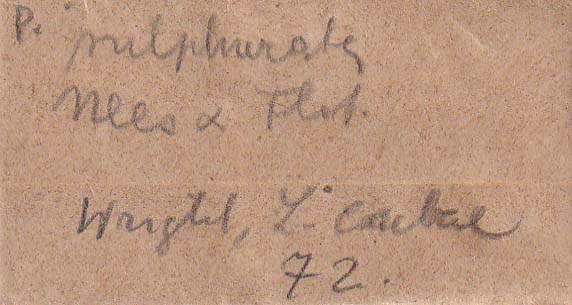 P. sulphurata
Nees & Flot.
Wright, L. cubae
72.